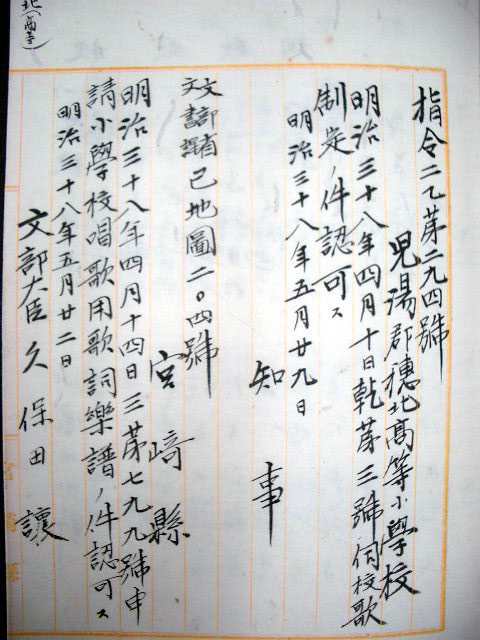 北(高等)
指令二乙第二九四號
児湯郡穗北高等小學校
明治三十八年四月十日乾第三號伺校歌
制定ノ件認可ス
明治三十八年五月廿九日
知事
文部省己地圖二〇四號
宮崎縣
明治三十八年四月十四日三第七九九號申
請小學校唱歌用歌詞樂譜ノ件認可ス
明治三十八年五月廿二日
文部大臣久保田讓